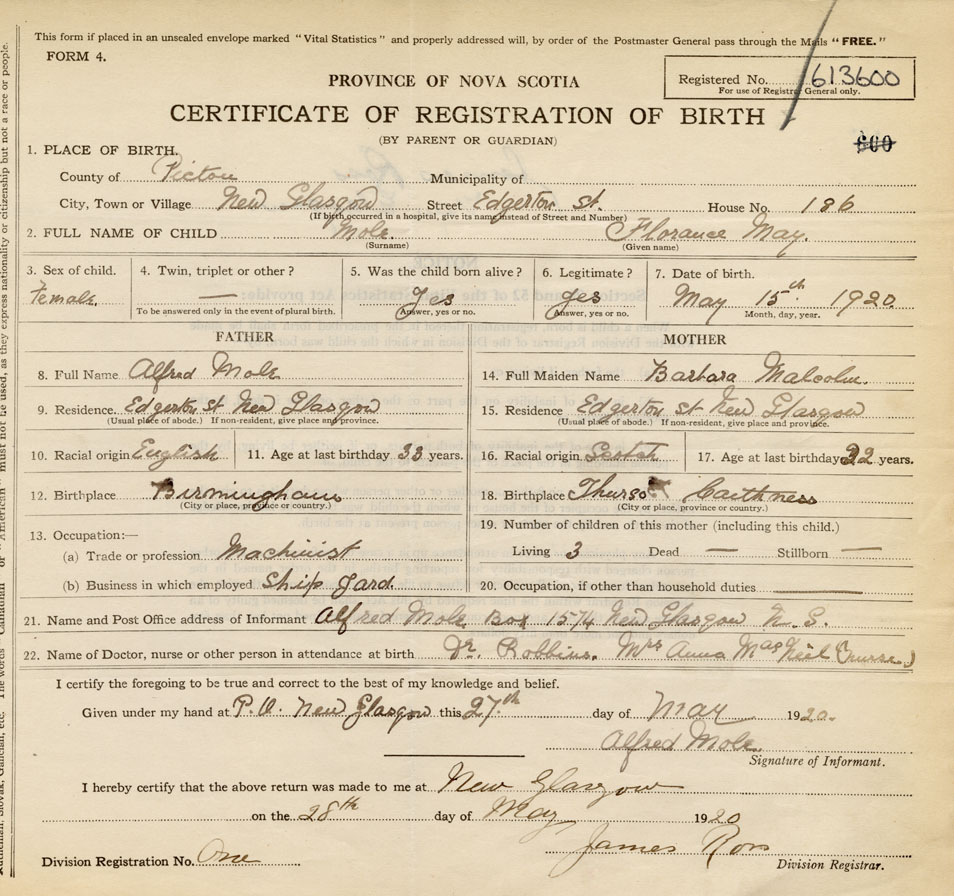 This form if placed in an unsealed envelope marked "Vital Statistics" and properly addressed will, by order of the Postmaster General pass through the Mails "FREE."
FORM 4.
Registered No. 613600
For use of Registrar General only.
PROVINCE OF NOVA SCOTIA
CERTIFICATE OF REGISTRATION OF BIRTH
(BY PARENT OR GUARDIAN)
600
1. PLACE OF BIRTH.
County of Pictou Municipality of
City, Town or Village New Glasgow Street Edgerton St. House No. 186
(If birth occurred in a hospital, give its name instead of Street and Number)
2. FULL NAME OF CHILD Mole. Florance May.
(Surname) (Given name)
3. Sex of child. 4. Twin, triplet or other? 5. Was the child born alive? 6. Legitimate? 7. Date of birth.
Female. — Yes yes May 15th 1920
To be answered only in the event of plural birth. Answer, yes or no. Answer, yes or no. Month, day, year.
FATHER
8. Full Name Alfred Mole
9. Residence Edgerton St New Glasgow
(Usual place of abode.) If non-resident, give place and province.
10. Racial origin English 11. Age at last birthday 33 years.
12. Birthplace Birmingham
(City or place, province or country.)
13. Occupation:—
(a) Trade or profession Machinist
(b) Business in which employed Ship yard.
MOTHER
14. Full Maiden Name Barbara Malcolm.
15. Residence Edgerton St New Glasgow
(Usual place of abode.) If non-resident, give place and province.
16. Racial origin Scotch 17. Age at last birthday 22 years.
18. Birthplace Thurso Caithness
(City or place, province or country.)
19. Number of children of this mother (including this child.)
Living 3 Dead — Stillborn —
20. Occupation, if other than household duties
21. Name and Post Office address of Informant Alfred Mole Box 1574 New Glasgow N. S.
22. Name of Doctor, nurse or other person in attendance at birth Dr. Robbins. Mrs Anna MacNeil (nurse.)
I certify the foregoing to be true and correct to the best of my knowledge and belief.
Given under my hand at P.O. New Glasgow this 27th day of May 1920.
Alfred Mole.
Signature of Informant.
I hereby certify that the above return was made to me at New Glasgow
on the 28th day of May 1920
James Ross
Division Registration No. One Division Registrar.